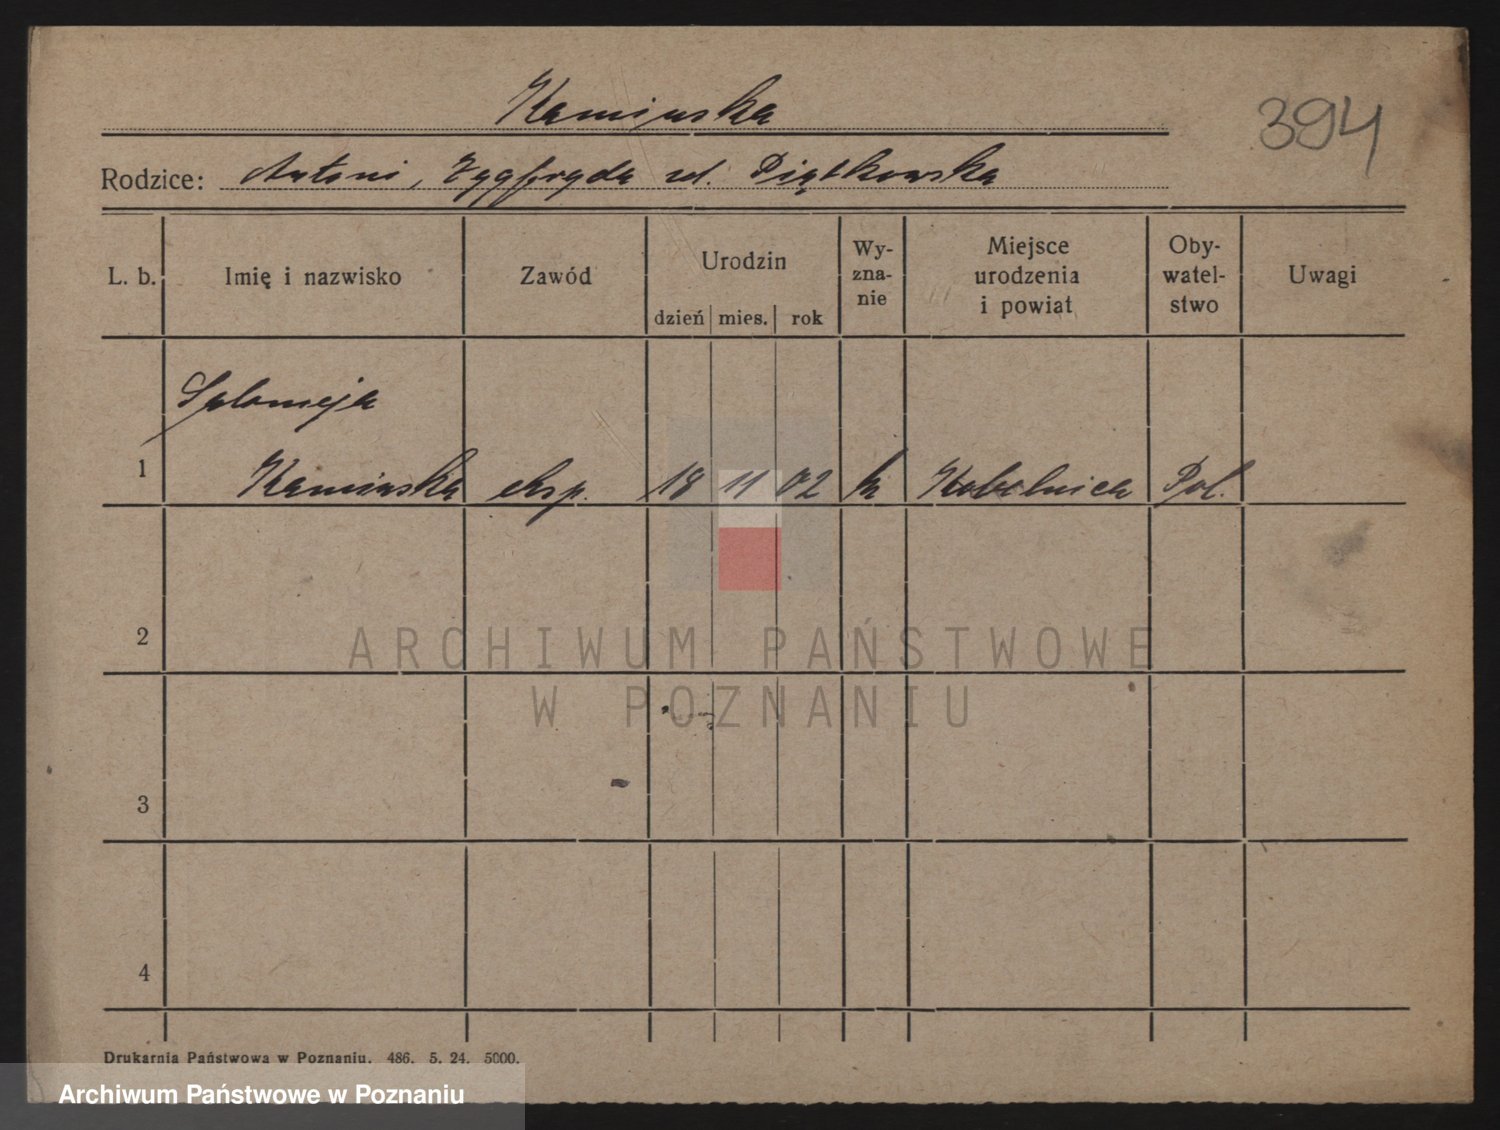 Kamińska
394
Rodzice: Antoni, Zygfryda zd. Piątkowska
L. b. Imię i nazwisko Zawód Urodzin dzień mies. rok Wy-zna-nie Miejsce urodzenia i powiat Oby-watel-stwo Uwagi
Salomeja
1 Kamińska eksp. 18 11 02 k Kobelnica Pol.
2
ARCHIWUM PAŃSTWOWE
W POZNANIU
3
4
Drukarnia Państwowa w Poznaniu. 486. 5. 24. 5000.
Archiwum Państwowe w Poznaniu